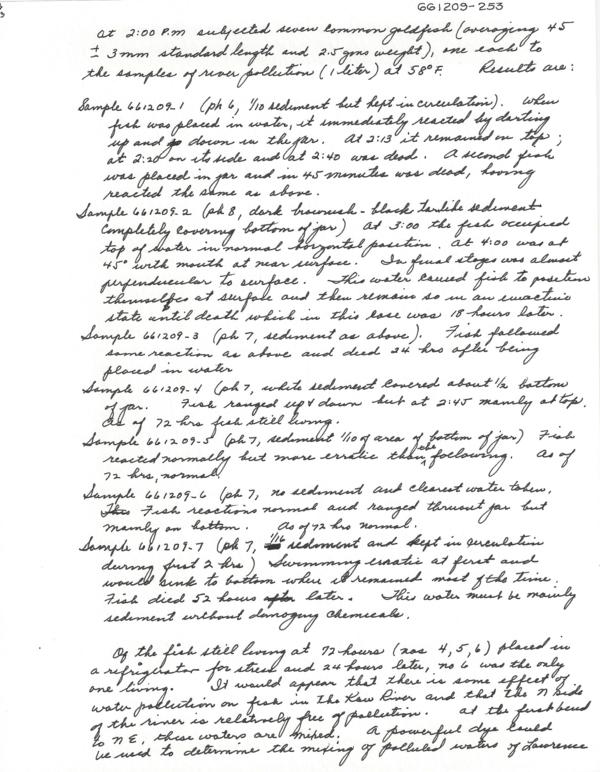 GG1209-253
at 2:00 P.m subjected seven common goldfish (averaging 45
± 3mm standard length and 2.5 gms weight), one each to
the samples of river pollution (1 liter) at 58°F. Results are:
Sample 661209-1 (ph 6, 1/10 sediment but kept in circulation). When
fish was placed in water, it immediately reacted by darting
up and down in the jar. At 2:13 it remained on top;
at 2:20 on its side and at 2:40 was dead. A second fish
was placed in jar and in 45 minutes was dead, having
reacted the same as above.
Sample 661209-2 (ph 8, dark brownish-black tarlike sediment
completely covering bottom of jar) At 3:00 the fish occupied
top of water in normal horizontal position. At 4:00 was at
45° with mouth at near surface. In final stages was almost
perpendicular to surface. This water caused fish to position
themselves at surface and then remain so in an inactive
state until death which in this case was 18 hours later.
Sample 661209-3 (ph 7, sediment as above). Fish followed
same reaction as above and died 24 hrs after being
placed in water
Sample 661209-4 (ph 7, white sediment covered about 1/2 bottom
of jar. Fish ranged up & down but at 2:45 mainly at top.
As of 72 hrs fish still living.
Sample 661209-5 (ph 7, sediment 1/10 of area of bottom of jar) Fish
reacted normally but more erratic than the following. As of
72 hrs, normal.
Sample 661209-6 (ph 7, no sediment and clearest water taken.
This Fish reactions normal and ranged thruout jar but
mainly on bottom. As of 72 hrs normal.
Sample 661209-7 (ph 7, 1/16 sediment and kept in circulation
during first 2 hrs) Swimming erratic at first and
would sink to bottom where it remained most of the time.
Fish died 52 hours after later. This water must be mainly
sediment without damaging chemicals.
Of the fish still living at 72 hours (nos 4, 5, 6) placed in
a refrigerator for stress and 24 hours later, no 6 was the only
one living. It would appear that there is some effect of
water pollution on fish in the Kaw River and that the N side
of the river is relatively free of pollution. At the first bend
to N E, these waters are mixed. A powerful dye could
be used to determine the mixing of polluted waters of Lawrence